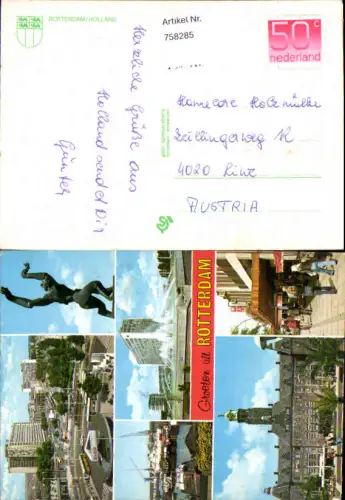 ROTTERDAM/HOLLAND
Artikel Nr.
758285
50c
nederland
Herzliche Grüße aus
Holland sendet Dir
Günter
4020 Linz
AUSTRIA
Groeten uit
ROTTERDAM